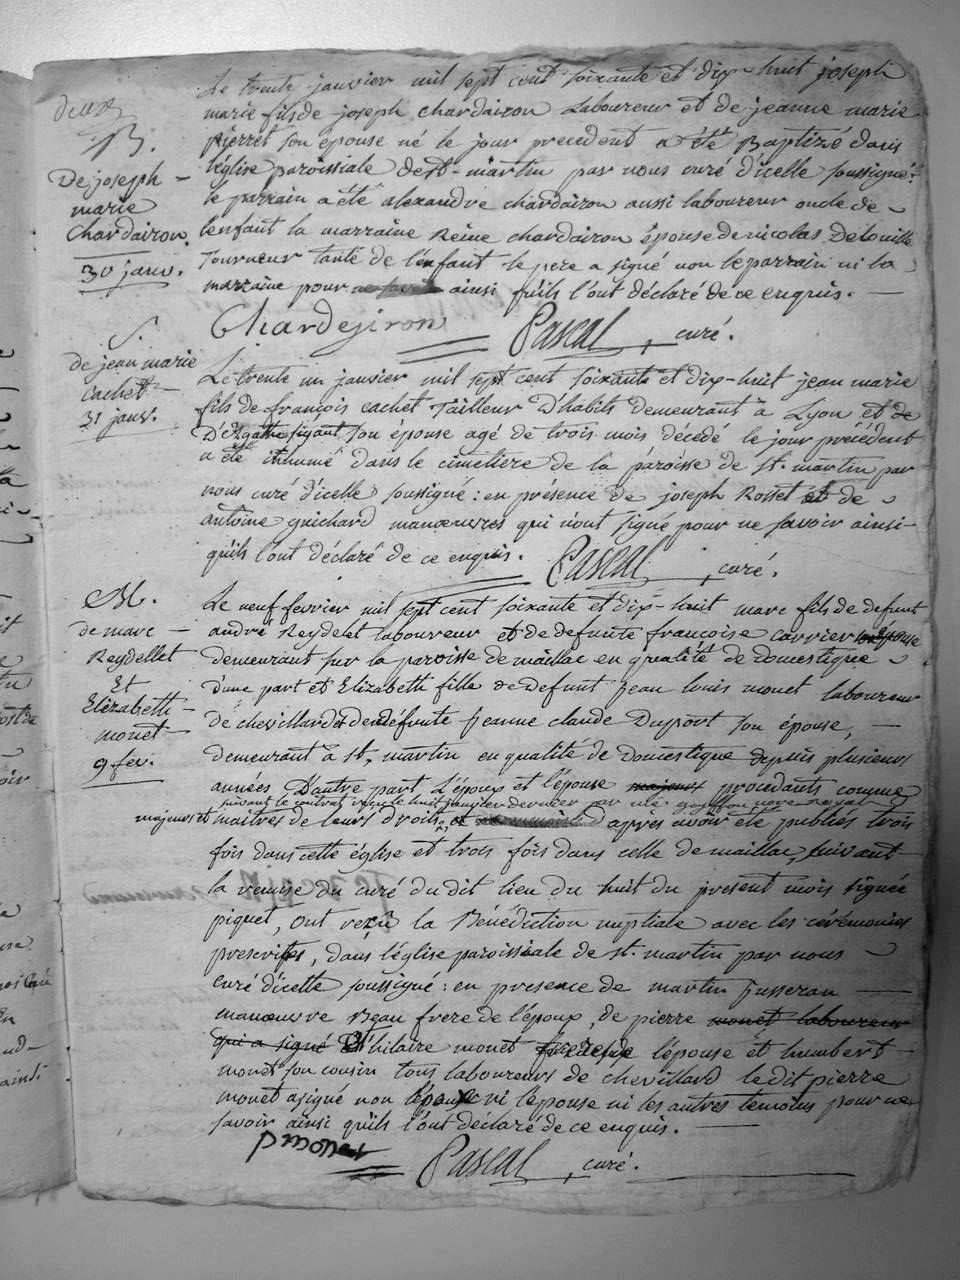 B.
De joseph
marie
Chardairon.
30 janv.
Le trente janvier mil sept cent soixante et dix-huit joseph
marie fils de joseph chardairon Laboureur et de jeanne marie
pierret son épouse né le jour precedent a été Baptizé dans
l'église paroissiale de st-martin par nous curé d'icelle soussigné:
le parrain a été alexandre chardairon aussi laboureur oncle de
l'enfant la marraine Reine chardairon épouse de nicolas Delouille
Tourneur tante de l'enfant le pere a signé non le parrain ni la
marraine pour ainsi qu'ils l'ont déclaré de ce enquis.
Chardejiron Pascal, curé.
S.
de jean marie
cachet
31 janv.
Le trente un janvier mil sept cent soixante et dix-huit jean marie
fils de françois cachet Tailleur D'habits demeurant à Lyon et de
D'Agathe son épouse agé de trois mois décédé le jour précédent
a été inhumé dans le cimetière de la paroisse de st. martin par
nous curé d'icelle soussigné: en présence de joseph Rosset et de
antoine guichard manœuvres qui n'ont signé pour ne savoir ainsi
qu'ils l'ont déclaré de ce enquis. Pascal, curé.
M.
de marc
Reydellet
Et
Elizabeth
monet
9 fev.
Le neuf fevrier mil sept cent soixante et dix-huit marc fils de defunt
andré Reydelet laboureur et de defunte françoise carrier
demeurant sur la paroisse de maillac en qualité de domestique
d'une part et Elizabeth fille de defunt jean louis monet laboureur
de chevillard et de defunte jeanne claude Dupont son épouse,
demeurant à st. martin en qualité de domestique depuis plusieurs
années D'autre part, L'époux et l'épouse majeurs procedants comme
suivant le contrat reçu le huit janvier dernier par me
majeurs et maitres de leurs droits, et après avoir été publiés trois
fois dans cette église et trois fois dans celle de maillac, suivant
la remise du curé du dit lieu du huit du present mois signée
piquet, ont reçu la Bénédiction nuptiale avec les cérémonies
prescrites, dans l'église paroissiale de st. martin par nous
curé d'icelle soussigné: en presence de martin jusseran
manœuvre Beau frere de l'époux, de pierre monet laboureur
qui a signé Et d'hilaire monet l'épouse et humbert
monet son cousin tous laboureurs de chevillard le dit pierre
monet a signé non l'époux ni l'épouse ni les autres temoins pour ne
savoir ainsi qu'ils l'ont déclaré de ce enquis.
p monet
Pascal, curé.